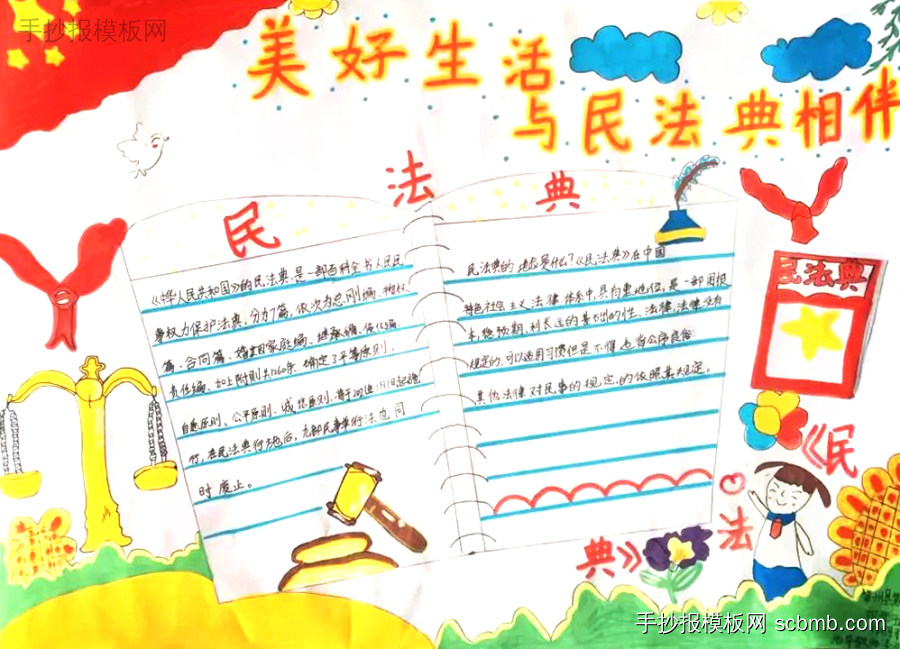 手抄报模板网
美好生活
与民法典相伴
民法典
《中华人民共和国》的民法典,是一部百科全书人民民
事权力保护法典,分为7篇,依次为总则编、物权
篇、合同篇、婚姻家庭编、继承编、侵权编
责任编,加上附则共1260条,确定了平等原则,
自愿原则、公平原则、诚信原则、将于2021年1月1日起施
行,在民法典行施后,九部民事单行法也同
时废止。
民法典的地位是什么?《民法典》在中国
特色社会主义法律体系中,具有重地位,是一部固根
本,稳预期,利长远的基础的性,法律,法律没有
规定的,可以适用习惯但是不得也背公序良俗
其他法律对民事的规定,的依照其规定。
民法典
《民
法
典》
手抄报模板网 scbmb.com